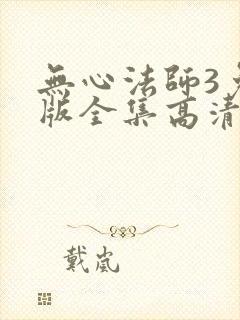 無心法師3
版全集高清
戴嵐